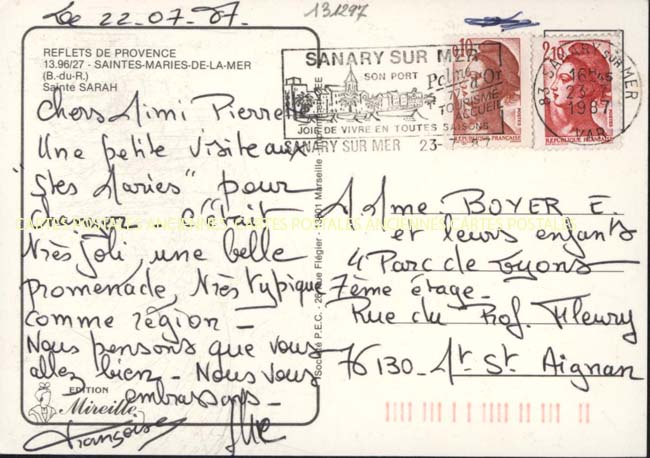 Le 22.07.87.
131297
REFLETS DE PROVENCE
13.96/27 - SAINTES-MARIES-DE-LA-MER
(B.-du-R.)
Sainte SARAH
Chers Mimi Pierrette
Une petite visite aux
"Stes Maries" pour
c'était
très joli, une belle
promenade, très typique
comme région -
Nous pensons que vous
allez bien - Nous vous
embrassons -
Françoise
EDITION
Mireille
Société P.E.C. - 26 rue Flégier - Marseille
SANARY SUR MER
SON PORT
Palme d'Or
TOURISME
ACCUEIL
JOIE DE VIVRE EN TOUTES SAISONS
SANARY SUR MER 23-7-87
0,10
REPUBLIQUE FRANCAISE
2,10
REPUBLIQUE FRANCAISE
83 SANARY SUR MER
16H45
23-7
1987
VAR
M Mme BOYER E.
et leurs enfants
4 Parc de Lyons
7ème étage -
Rue du Prof. Fleury
76130 - Mt St Aignan
CARTES POSTALES ANCIENNES CARTES POSTALES ANCIENNES CARTES POSTALES